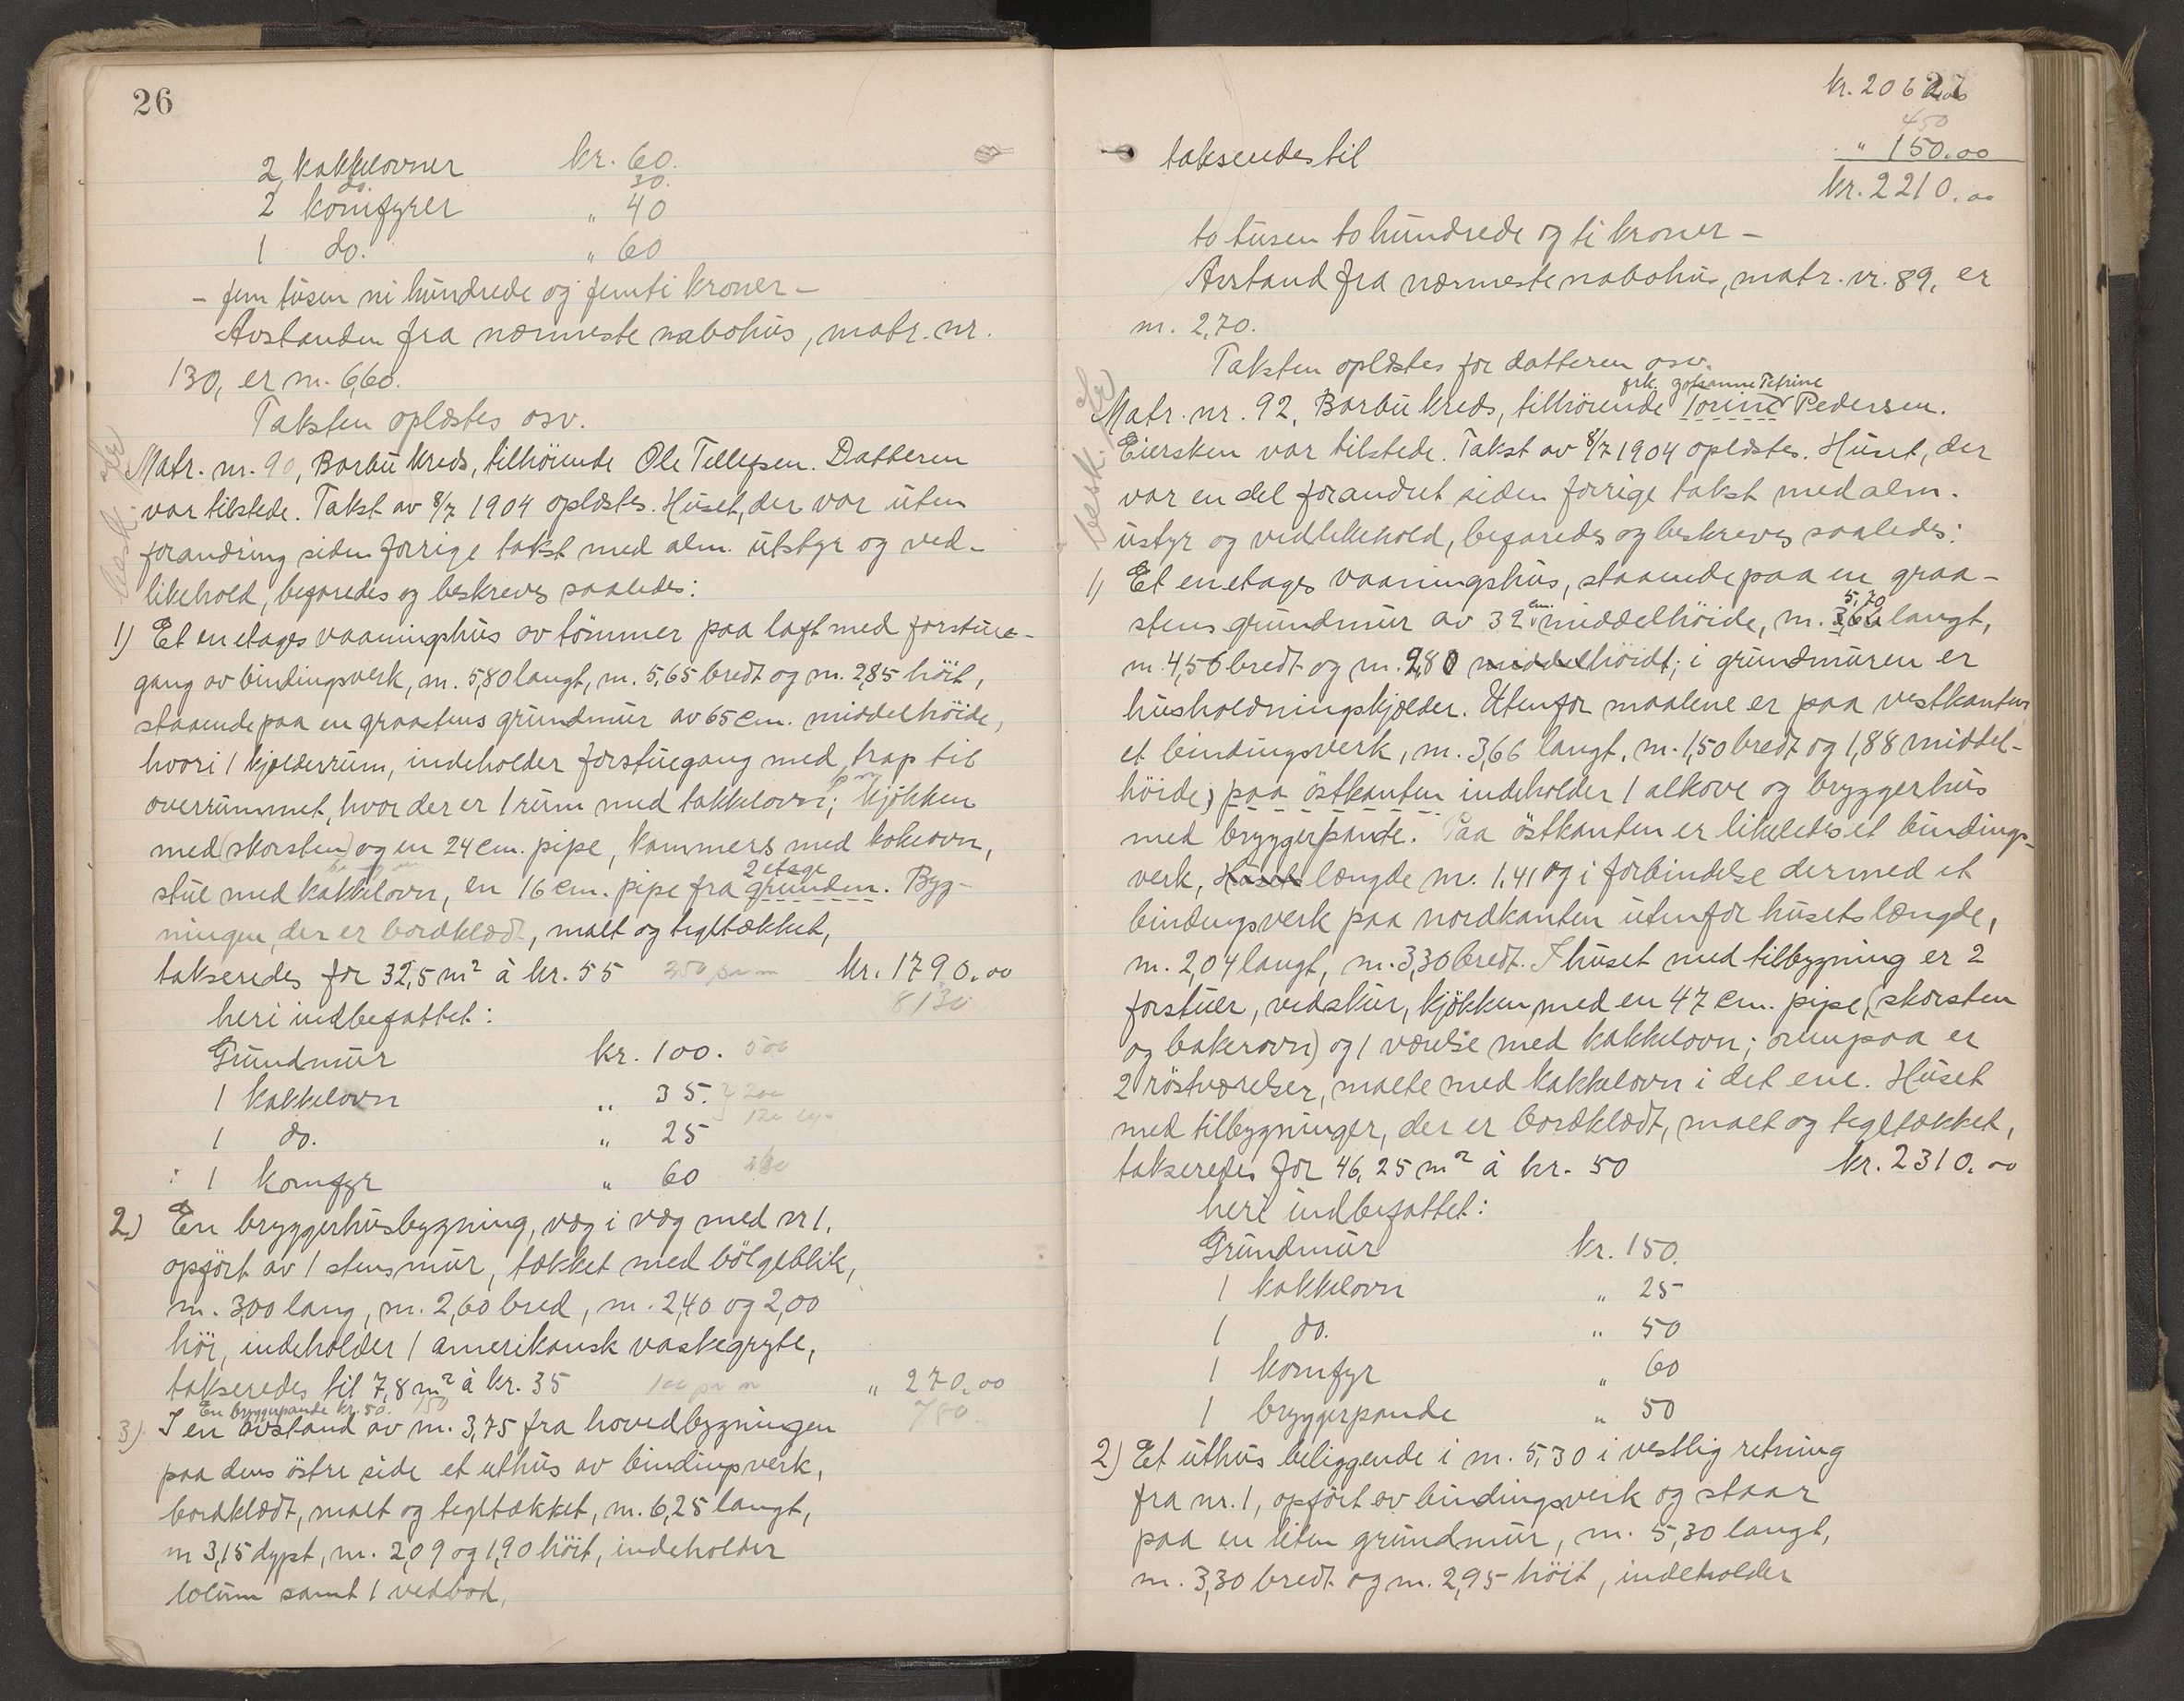 26
2 kakkelovner kr. 60.
do. 30.
2 komfyrer " 40
1 do. " 60
- fem tusen ni hundrede og femti kroner -
Avstanden fra nærmeste nabohus, matr. nr.
130, er m. 6,60.
Taksten oplæstes osv.
Matr. nr. 90, Barbu kreds, tilhörende Ole Tellefsen. Datteren
var tilstede. Takst av 8/7 1904 oplæstes. Huset, der var uten
forandring siden forrige takst med alm. utstyr og ved-
likehold, befaredes og beskreves saaledes:
1) Et en etages vaaningshus av tömmer paa laft med forstue-
gang av bindingsverk, m. 5,80 langt, m. 5,65 bredt og m. 2,85 höit,
staaende paa en graastens grundmur av 65 cm. middelhöide,
hvori 1 kjælderrum, indeholder forstuegang med trap til
overrummet, hvor der er 1 rum med kakkelovn; kjökken
med (skorsten) og en 24 cm. pipe, kammers med kokeovn,
2 etage
stue med kakkelovn, en 16 cm. pipe fra grunden. Byg-
ningen, der er bordklædt, malt og tegltækket,
takseredes for 32,5 m² à kr. 55 250 pr m kr. 1790.00
8130
heri indbefattet:
Grundmur kr. 100. 500
1 kakkelovn " 35. 200
1 do. " 25
1 komfyr " 60
2) En bryggerhusbygning, væg i væg med nr 1,
opfört av 1 stens mur, tækket med bölgeblik,
m. 3,00 lang, m. 2,60 bred, m. 2,40 og 2,00
höi, indeholder 1 amerikansk vaskegryte,
takseredes til 7,8 m² à kr. 35 100 pr m " 270.00
En bryggepande kr. 50. 150 780
3) I en avstand av m. 3,75 fra hovedbygningen
paa dens östre side et uthus av bindingsverk,
bordklædt, malt og tegltækket, m. 6,25 langt,
m 3,15 dypt, m. 2,09 og 1,90 höit, indeholder
locum samt 1 vedbod,
27
kr. 2060.00
450
takseredes til " 150.00
kr. 2210.00
to tusen to hundrede og ti kroner -
Avstand fra nærmeste nabohus, matr. nr. 89, er
m. 2,70.
Taksten oplæstes for datteren osv.
frk. Johanne Petrine
Matr. nr. 92, Barbu kreds, tilhörende Torine Pedersen.
Eiersken var tilstede. Takst av 8/7 1904 oplæstes. Huset, der
var en del forandret siden forrige takst med alm.
ustyr og vedlikehold, befaredes og beskreves saaledes:
1) Et enetages vaaningshus, staaende paa en graa-
cm. 5,70
stens grundmur av 32 middelhöide, m. 3,66 langt,
m. 4,56 bredt og m. 2,80 middelhöidt; i grundmuren er
husholdningskjælder. Utenfor maalene er paa vestkanten
et bindingsverk, m. 3,66 langt, m. 1,50 bredt og 1,88 middel-
höide; paa östkanten indeholder 1 alkove og bryggerhus
med bryggerpande. Paa östkanten er likeledes et bindings-
verk, Husets længde m. 1,41 og i forbindelse dermed et
bindingsverk paa nordkanten utenfor husets længde,
m. 2,04 langt, m. 3,30 bredt. I huset med tilbygning er 2
forstuer, vedskur, kjökken med en 47 cm. pipe, (skorsten
og bakerovn) og 1 værelse med kakkelovn; ovenpaa er
2 röstværelser, malte med kakkelovn i det ene. Huset
med tilbygninger, der er bordklædt, malt og tegltækket,
takseredes for 46,25 m² à kr. 50 kr. 2310.00
heri indbefattet:
Grundmur kr. 150.
1 kakkelovn " 25
1 do. " 50
1 komfyr " 60
1 bryggerpande " 50
2) Et uthus beliggende i m. 5,30 i vestlig retning
fra nr. 1, opfört av bindingsverk og staar
paa en liten grundmur, m. 5,30 langt,
m. 3,30 bredt og m. 2,95 höit, indeholder